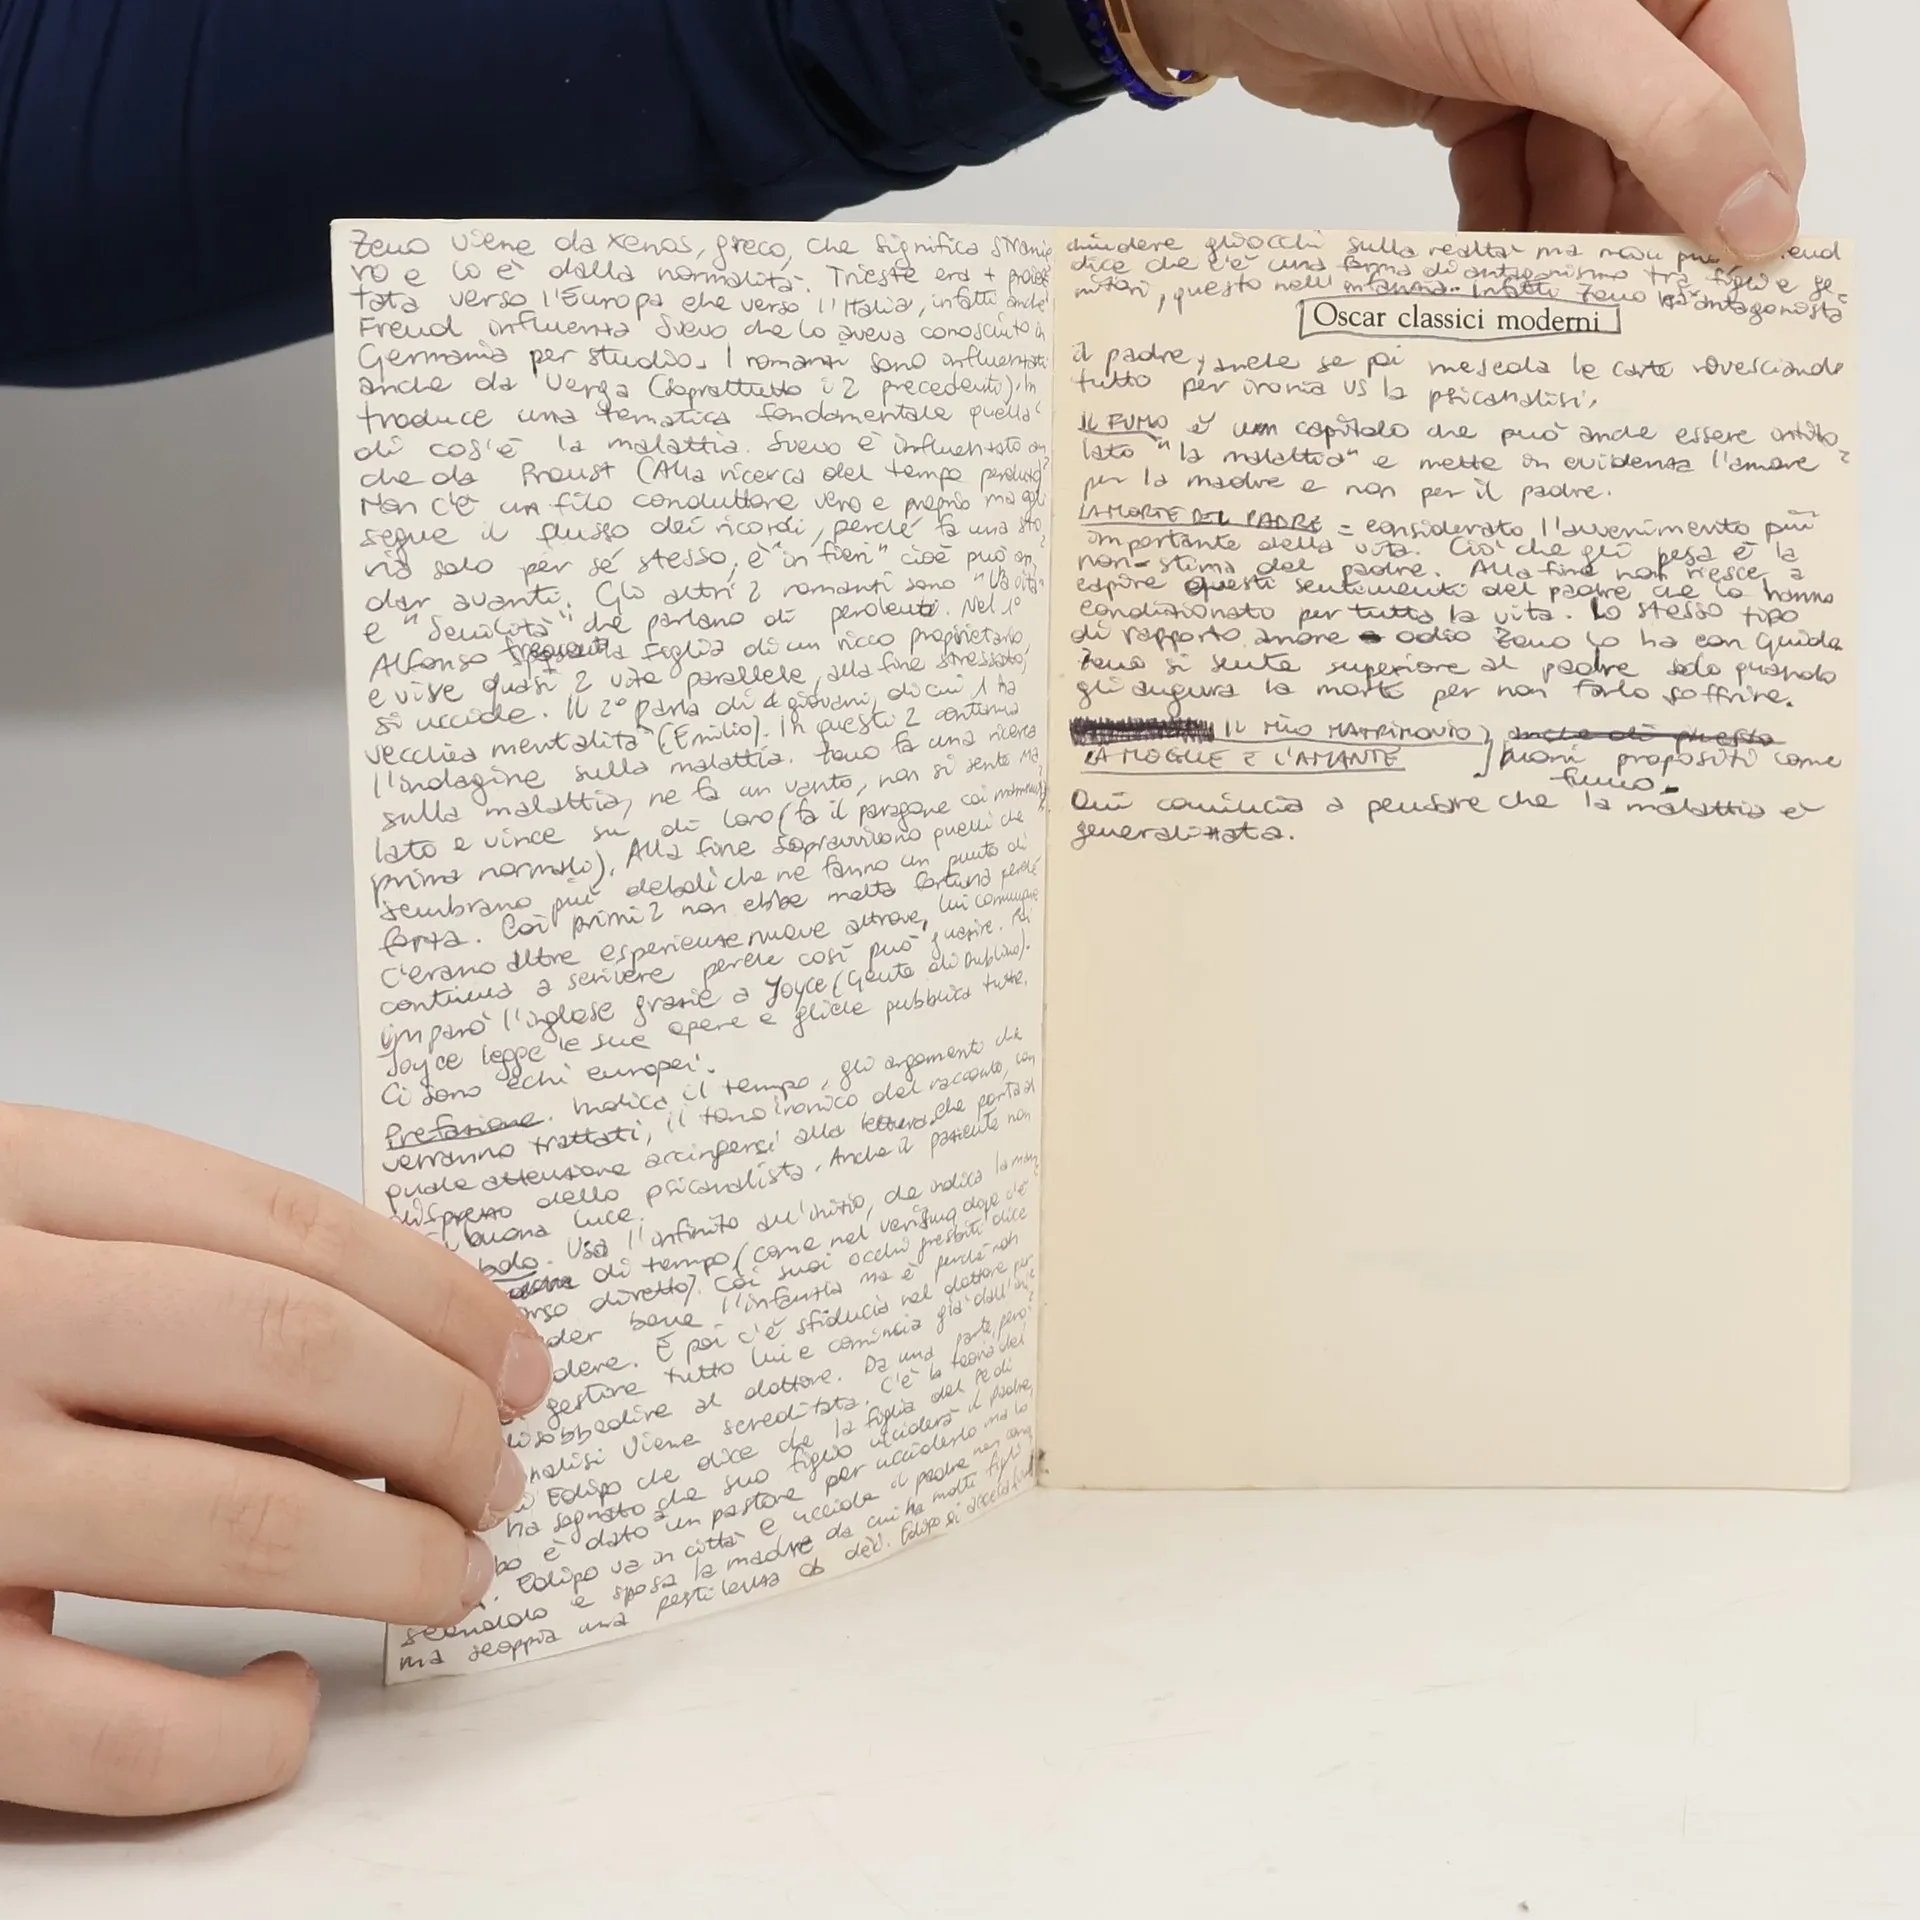 Zeno viene da xenos, greco, che significa stranie
ro e lo è dalla normalità. Trieste era + proiet
tata verso l'Europa che verso l'Italia, infatti anche
Freud influenza Svevo che lo aveva conosciuto in
Germania per studio. I romanzi sono influenzati
anche da Verga (soprattutto i 2 precedenti). In
troduce una tematica fondamentale quella
di cos'è la malattia. Svevo è influenzato an
che da Proust (Alla ricerca del tempo perduto)
Non c'è un filo conduttore vero e proprio ma egli
segue il flusso dei ricordi, perché fa una sto
ria solo per sé stesso, è "in fieri" cioè può an
dar avanti. Gli altri 2 romanzi sono "Una vita"
e "Senilità" che parlano di perdenti. Nel 1°
Alfonso frequenta la figlia di un ricco proprietario,
e vive quasi 2 vite parallele, alla fine stressato,
si uccide. Il 2° parla di 4 giovani, di cui 1 ha
vecchia mentalità (Emilio). In questi 2 continua
l'indagine sulla malattia. Zeno fa una ricerca
sulla malattia, ne fa un vanto, non si sente ma
lato e vince su di loro (fa il paragone coi
prima normali). Alla fine sopravvivono quelli che
sembrano più deboli che ne fanno un punto di
forza. Coi primi 2 non ebbe molta fortuna perché
c'erano altre esperienze nuove altrove, lui comunque
continua a scrivere perché così può guarire. Poi
imparò l'inglese grazie a Joyce (Gente di Dublino).
Joyce legge le sue opere e gliele pubblica tutte.
Ci sono echi europei.
Prefazione. Indica il tempo, gli argomenti che
verranno trattati, il tono ironico del racconto, con
quale attenzione accingersi alla lettura che porta al
disprezzo dello psicanalista. Anche il paziente non
buona luce.
bolo. Usa l'infinito all'inizio, che indica la man
di tempo (come nel verismo dopo c'è
orso diretto). Coi suoi occhi presbiti dice
der bene l'infanzia ma è perché non
dere. E poi c'è sfiducia nel dottore per
gestire tutto lui e comincia già dall'ini
disobbedire al dottore. Da una parte, però
nalisi viene screditata. C'è la teoria del
di Edipo che dice che la figlia del Re di
ha sognato che suo figlio ucciderà il padre,
bo è dato a un pastore per ucciderlo ma lo
Edipo va in città e uccide il padre non
scendolo e sposa la madre da cui ha molti figli
ma scoppia una pestilenza dei. Edipo si acceca
chiudere gli occhi sulla realtà ma non può eud
dice che c'è una forma di antagonismo tra figli e ge
nitori, questo nell'infanzia. Infatti Zeno antagonista
Oscar classici moderni
il padre, anche se poi mescola le carte rovesciando
tutto per ironia vs la psicanalisi.
IL FUMO è un capitolo che può anche essere intito
lato "la malattia" e mette in evidenza l'amore
per la madre e non per il padre.
LA MORTE DEL PADRE = considerato l'avvenimento più
importante della vita. Ciò che gli pesa è la
non-stima del padre. Alla fine non riesce a
capire questi sentimenti del padre che lo hanno
condizionato per tutta la vita. Lo stesso tipo
di rapporto amore odio Zeno lo ha con Guido.
Zeno si sente superiore al padre solo quando
gli augura la morte per non farlo soffrire.
IL MIO MATRIMONIO } anche di questo
LA MOGLIE E L'AMANTE } buoni propositi come
fumo.
Qui comincia a pensare che la malattia è
generalizzata.